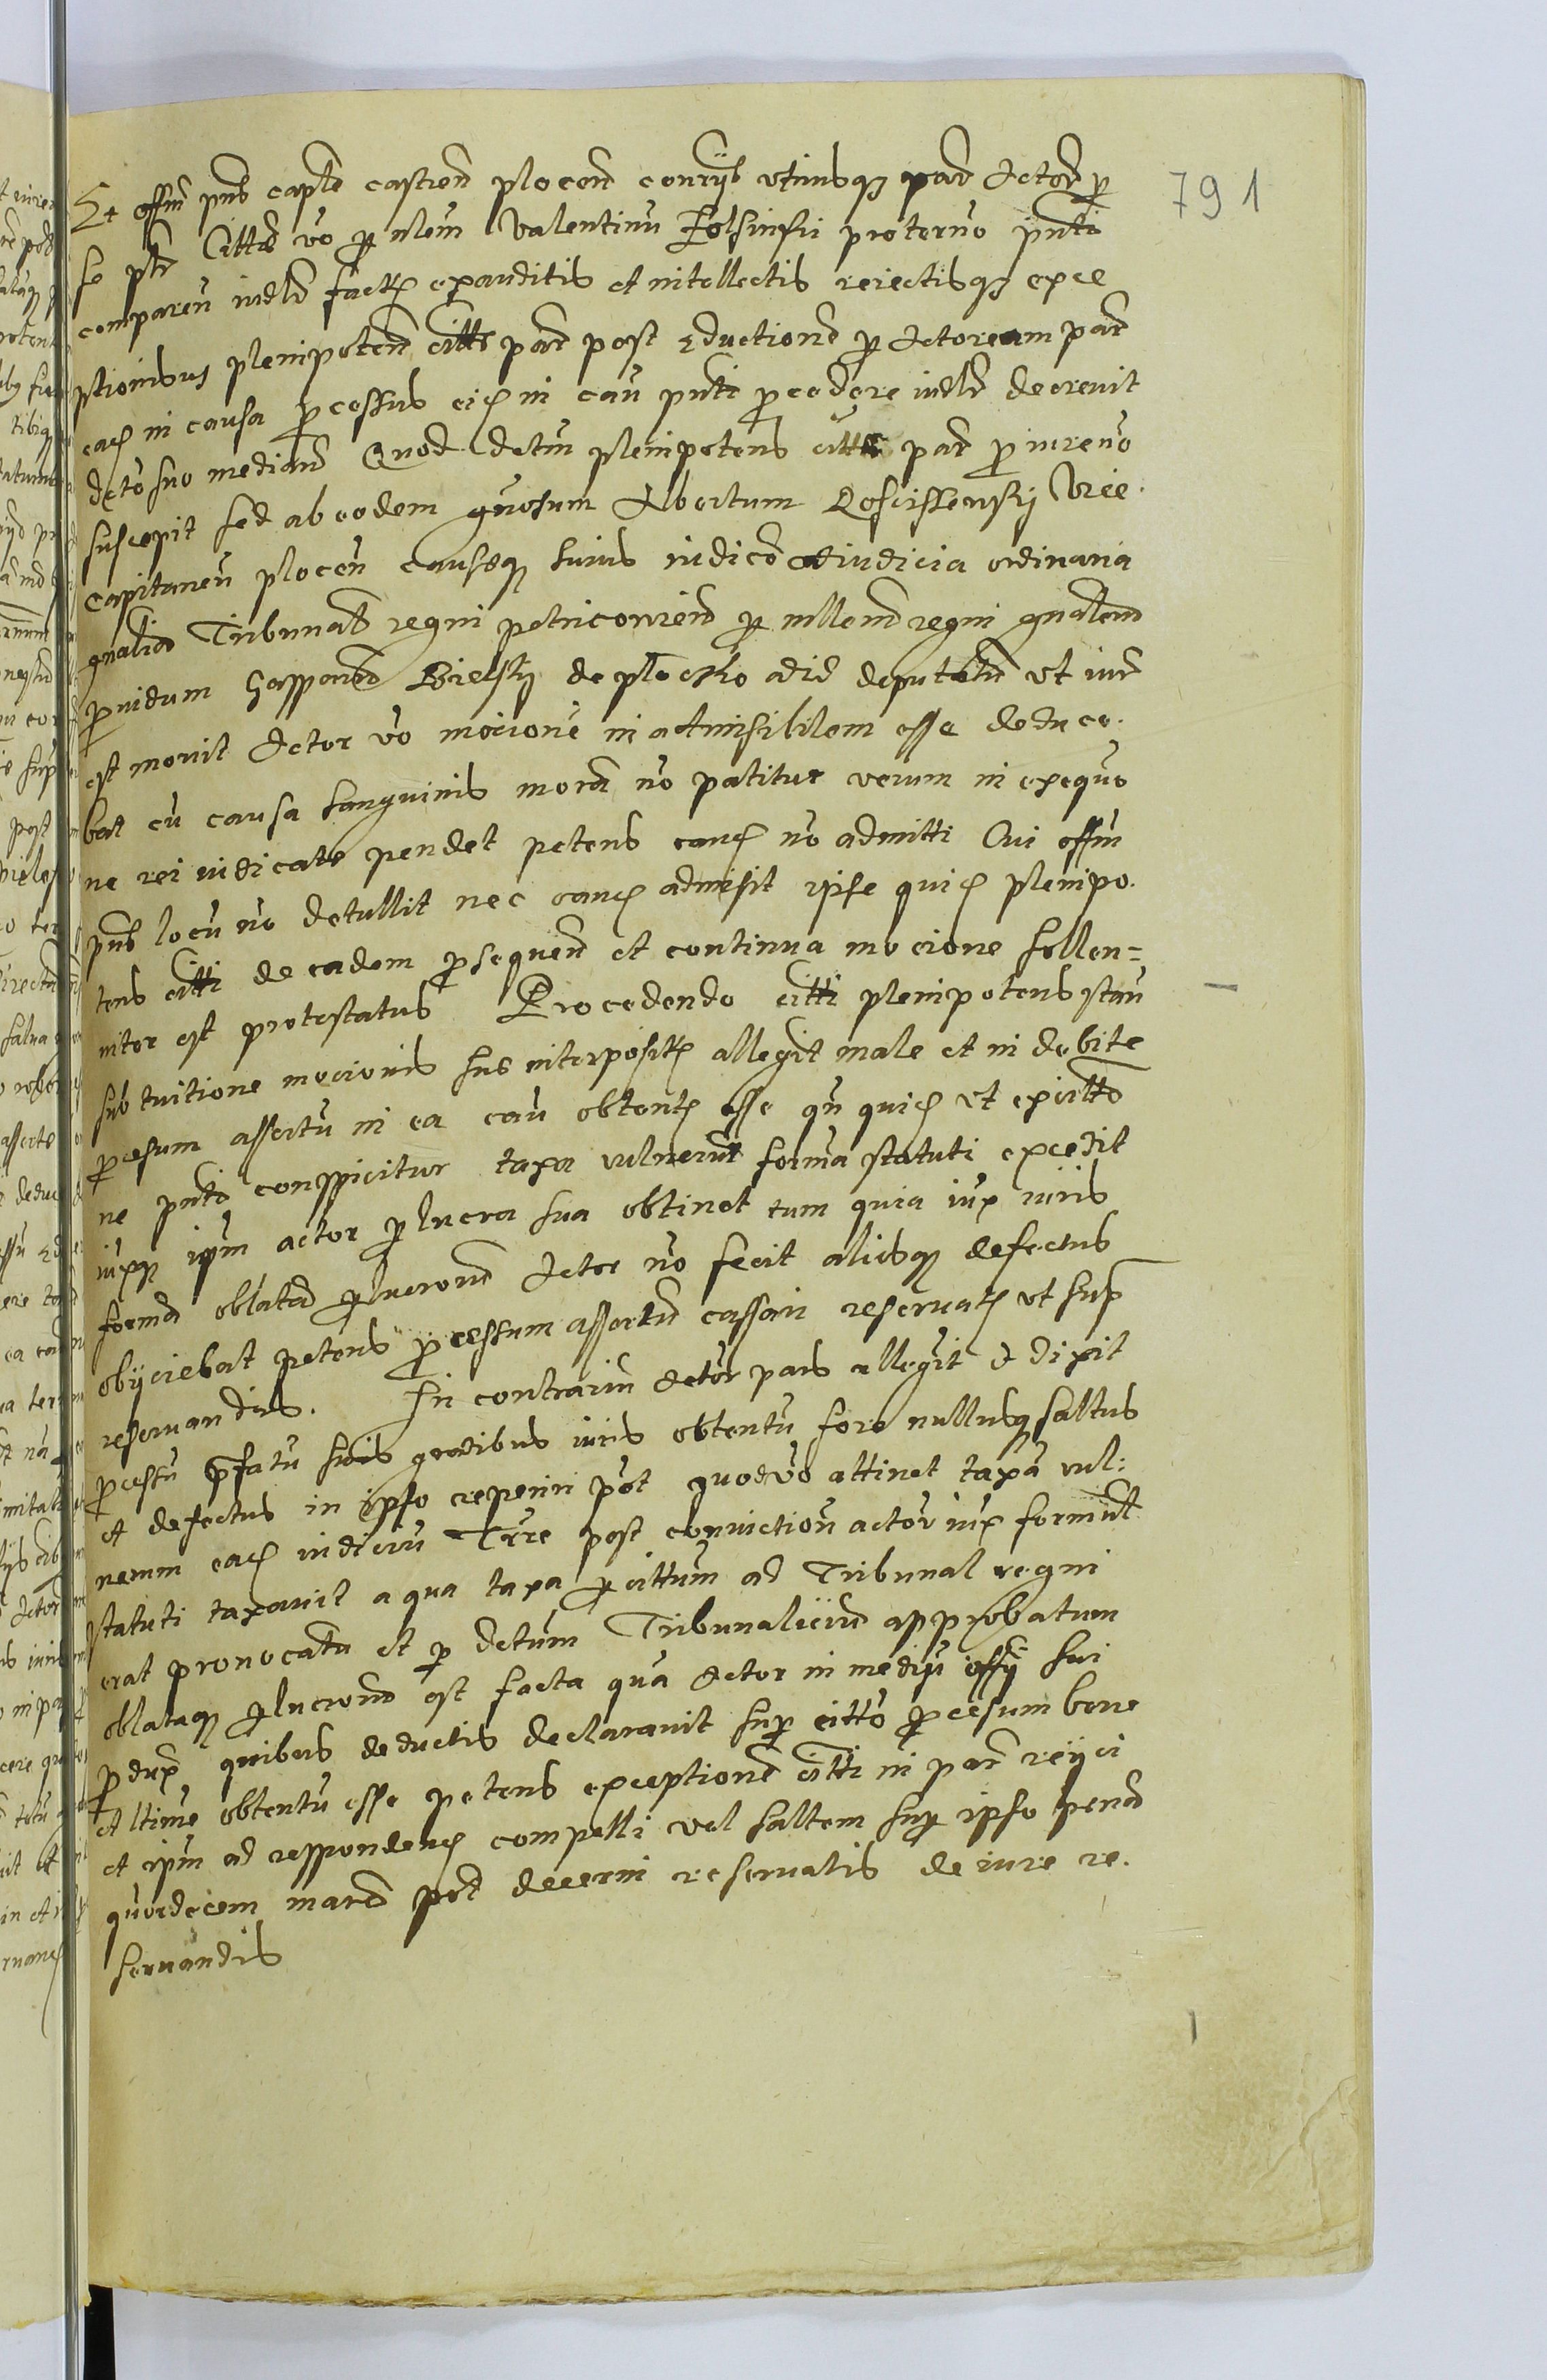 791
Et offm pns caple castren plocen contrijs utriusq par Actor p
se pls Citte vo p nlem Valentinu Folsinski proterno pnti
comparen iudlr fact exauditis et intellectis reiectisq exce
ptionibus plenipoten citte par post Eductione p Actoream par
eac in causa pcessus eic in cau pnti pcedere iudlr decrevit
dcto suo median Quod dctm plenipotens citte par p iure no
suscepit sed ab eodem gnosum Albertum Kosciessewsky Vice
capitaneu plocen causeq huius iudice ad iudicia ordinaria
gnalia Tribunalis regni petricovien p mllem regni gnalem
pvidum Gasparem Bielsky de plocsko ad id deputatu ut iur
est movit Actor vo mocione in admisibilem esse deduce
bat cu causa sanguinis mora no patitur verum in exequo
ne rei iudicate pendet petens eanc no admitti Cui offm
pns locu no detullit nec eanc admisit ipse quic plenipo
tens citti de eadem psequen et continua mocione sollen=
niter est protestatus Procedendo citti plenipotens stan
sub tuitione mocionis sue interposit allegit male et in debite
pcesum assertu in ea cau obtent esse qn quic ut ex citto
ne pnti conspicitur taxa vulnerum forma statuti excedit
iuxq ipm actor p lucra sua obtinet tum quia iux iuris
forma oblata plucrorum Actor no fecit aliosq defectus
obijciebat petens pcessum assertu cassari reservat ut sup
reservandis. In contrariu Actor pars allegit & dixit
pcessu pfatu suis gradibus iuris obtentu fore nullusq saltus
et defectus in ipso reperiri pot quod vo attinet taxa vul:
nerum eac iudiciu Trre post conviction actor iux formut
statuti taxavit a qua taxa p cittum ad Tribunal regni
erat provocatu et p dctum Tribunaliciu approbatum
oblataq plucrorum est facta qua Actor in mediu offij sui
pdux quibus deductis declaravit sup citto pcesum bene
et ltime obtentu esse petens exceptione citti in par reijci
et ipm ad respondenc compelli vel saltem sup ipso pena
quordecem marc pet decerni reservatis de iure re
servandis